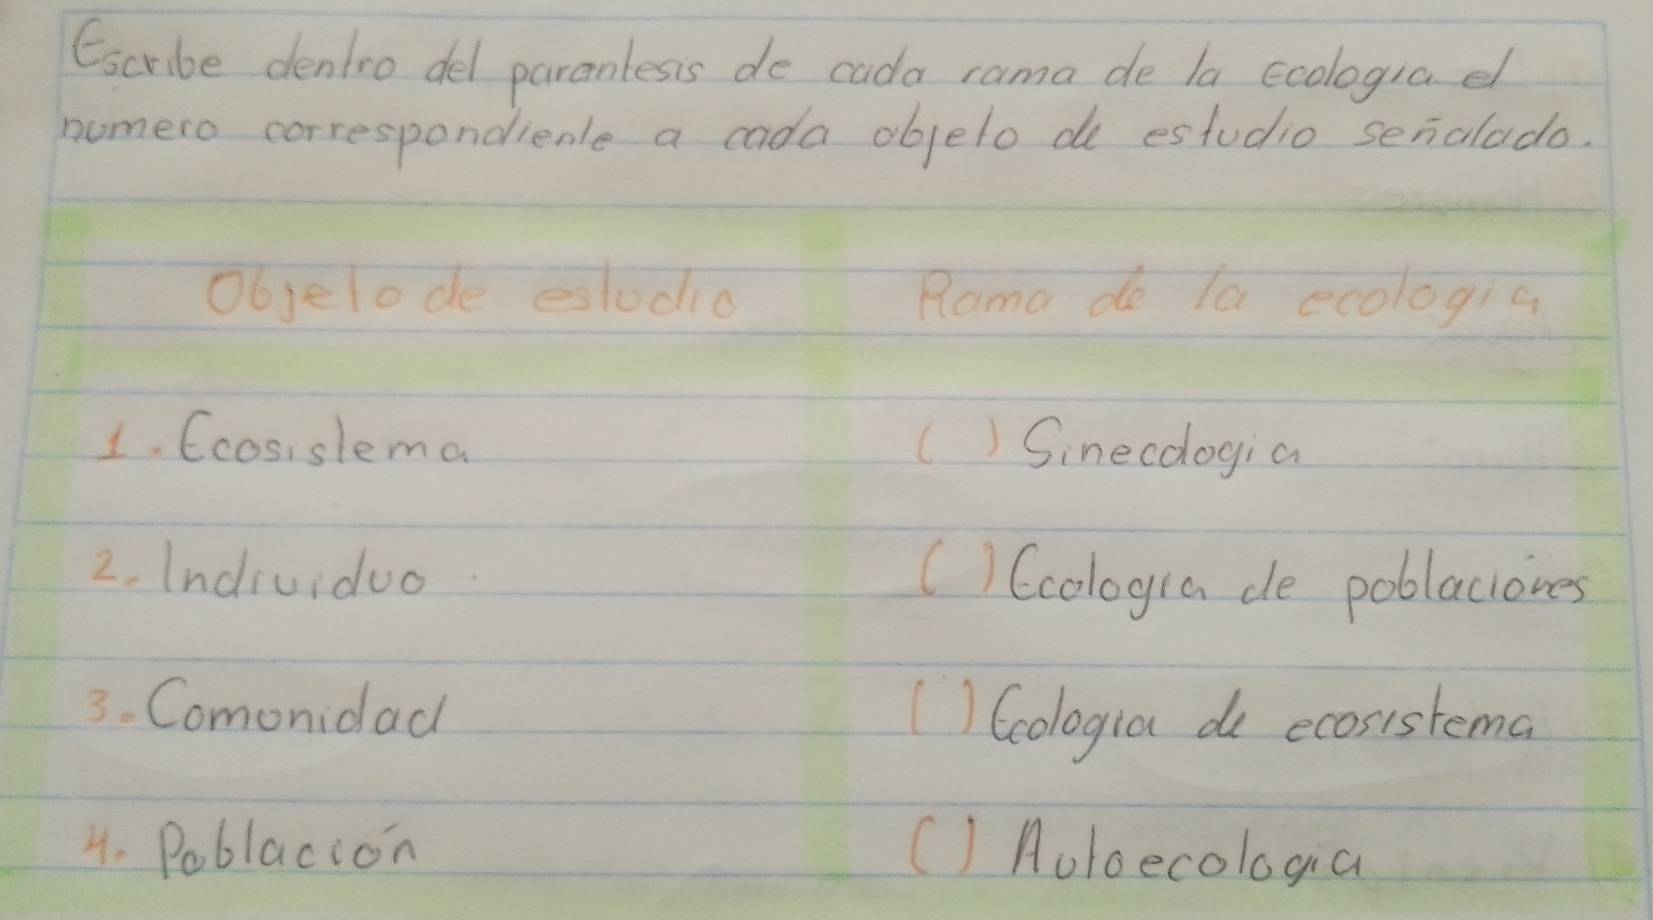 Escribe dentro del parantesis de cada rama de la Ecologia el
numero correspondiente a cada objeto de estudio señalado.
Objeto de estudio Rama de la ecologia
1. Ecosistema ( ) Sinecologia
2. Individuo ( ) Ecologia de poblaciónes
3. Comonidad ( ) Ecologia de ecosistema
4. Población ( ) Autoecologia